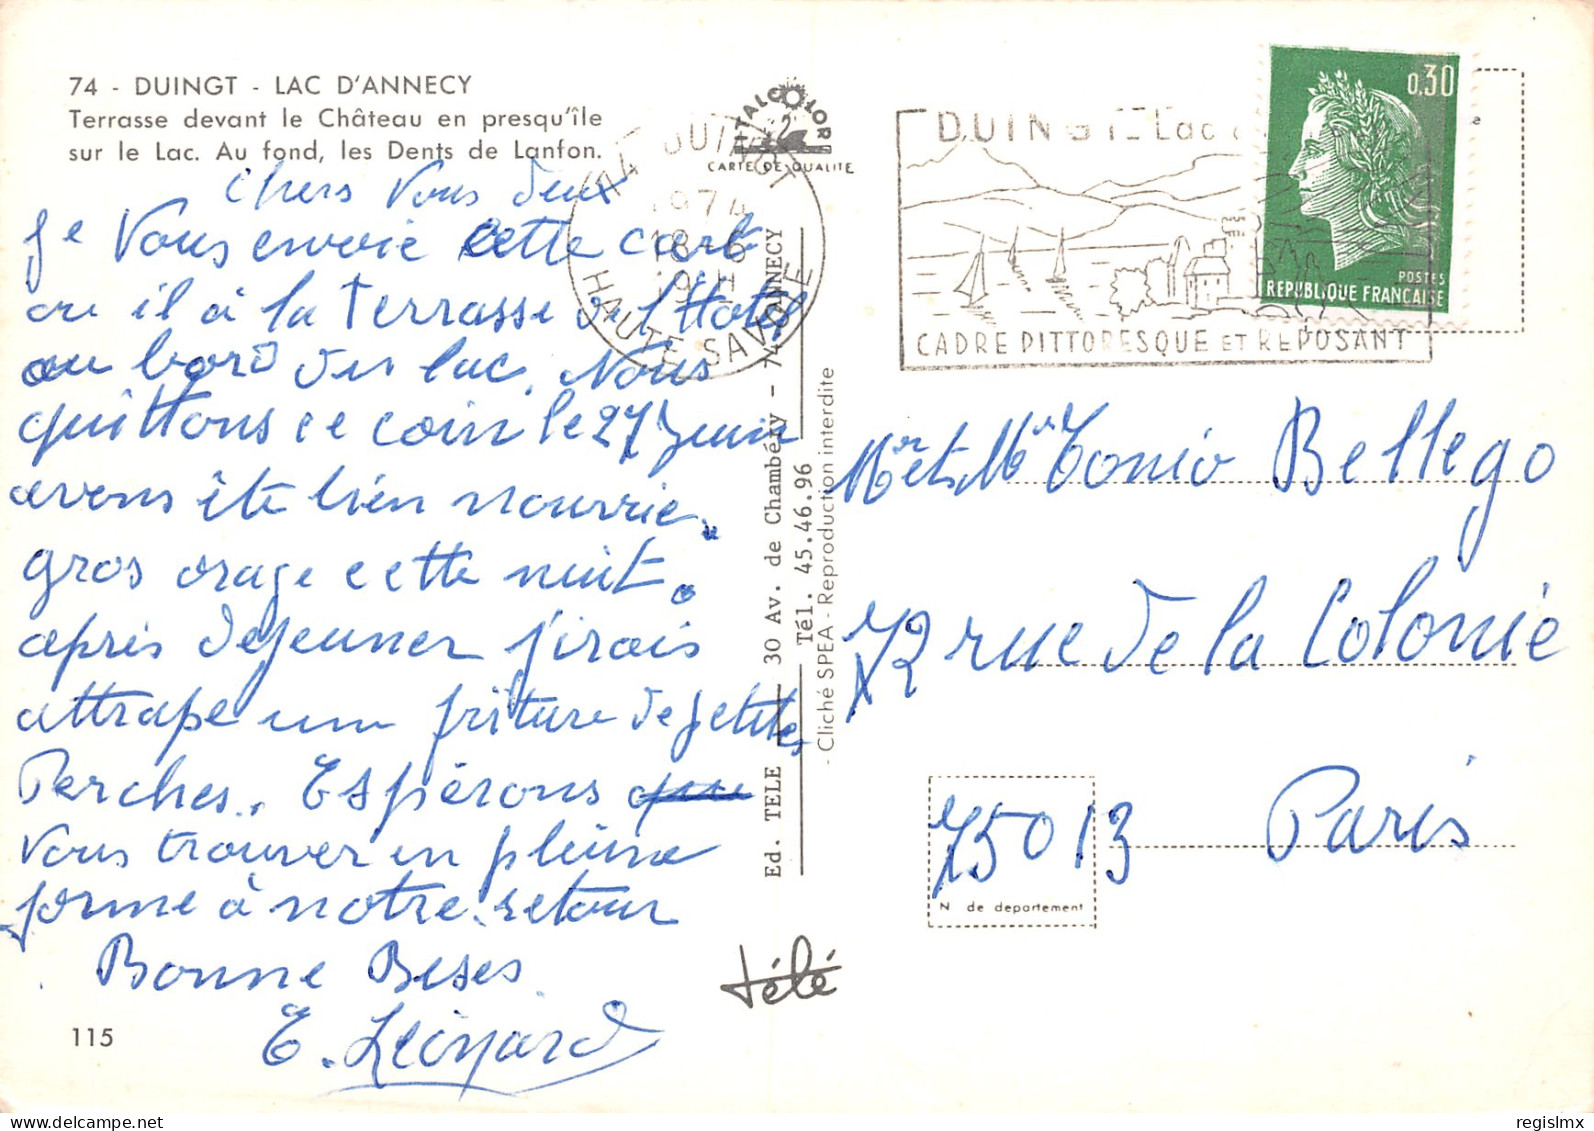 74 - DUINGT - LAC D'ANNECY
Terrasse devant le Château en presqu'île
sur le Lac. Au fond, les Dents de Lanfon.
Chers Vous Deux
Je Vous envoie cette cart
ou il a la terrasse de l'Hotel
au bord du lac. Nous
quittons ce coin le 27 Juin
avons ête bien nourrie.
gros orage cette nuit.
après dejeuner j'irais
attrape une friture de petites
Perches. Espérons que
vous trouver en pleine
forme à notre retour
Bonne Beses
E. Léonard
115
ITALCOLOR
CARTE DE QUALITE
74 DUINGT
1974
18-6
9 H
HAUTE SAVOIE
Ed. TELE - 30 Av. de Chambéry - 74 ANNECY
Tél. 45.46.96
- Cliché SPEA - Reproduction interdite
télé
DUINGT Lac
CADRE PITTORESQUE ET REPOSANT
0,30
POSTES
REPUBLIQUE FRANCAISE
Mr et Mme Tonio Bellego
72 rue de la Colonie
75013 Paris
N de departement
regislmx